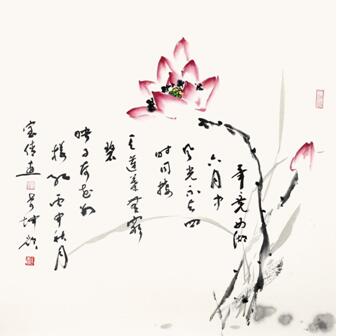 毕竟西湖
六月中
风光不与四
时同接
天莲叶无穷
碧
映日荷花别
样红 丙申秋月
坤题